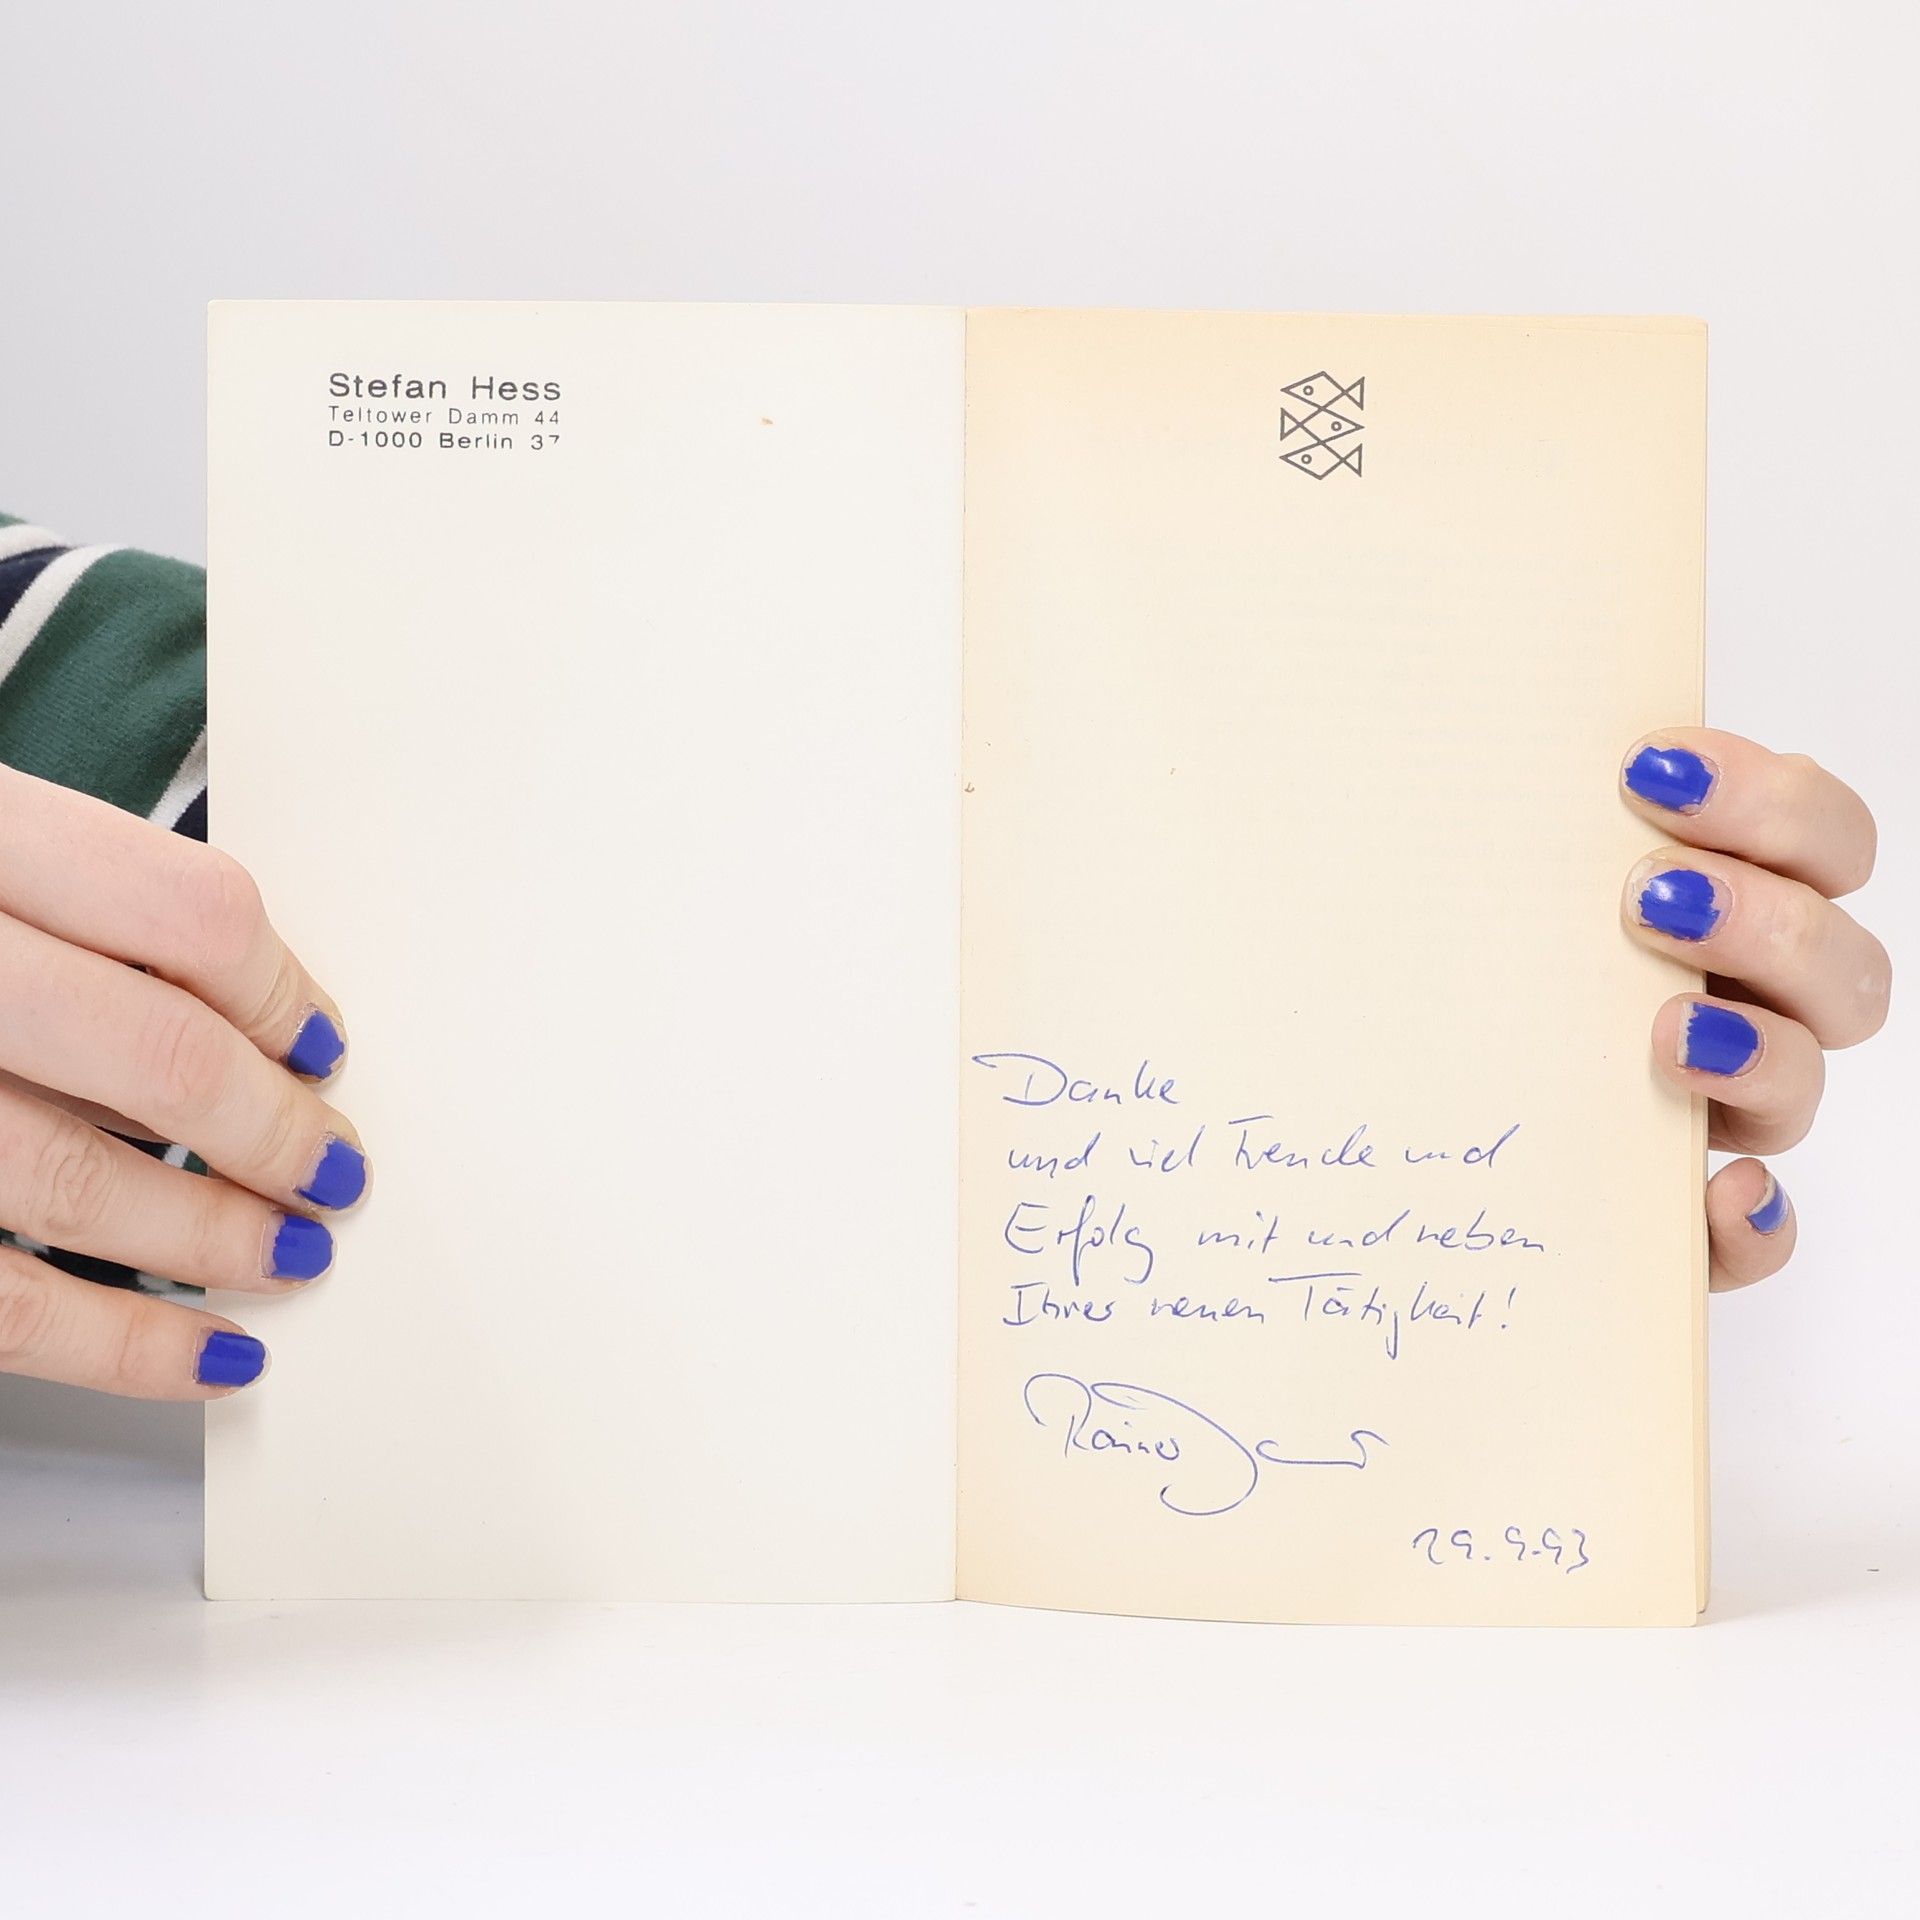 Stefan Hess
Teltower Damm 44
D-1000 Berlin 37
Danke
und viel Freude und
Erfolg mit und neben
Ihrer neuen Tätigkeit!
Rainer
29.9.93